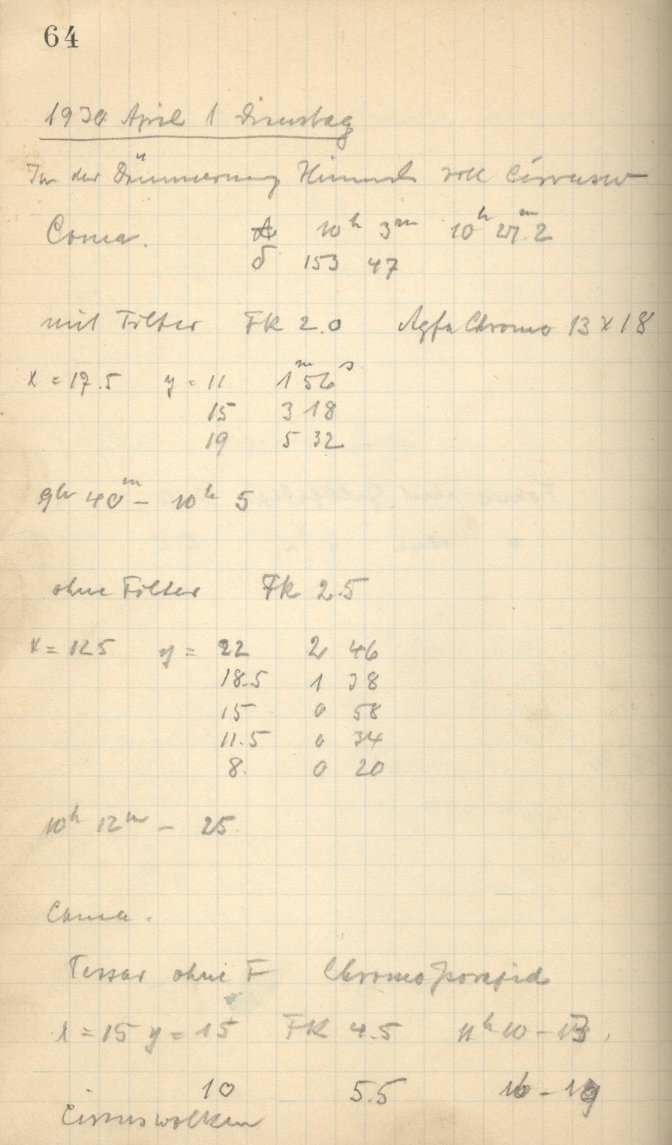 64
1930 April 1 Dienstag
In der Dämmerung Himmel voll Cirrusw
Coma. A 10h 3m 10h 27m.2
δ 153 47
mit Filter FK 2.0 Agfa Chromo 13 x 18
x = 17.5 y = 11 1m 56s
15 3 18
19 5 32
9h 40m - 10h 5
ohne Filter FK 2.5
x = 12.5 y = 22 2 46
18.5 1 38
15 0 58
11.5 0 34
8. 0 20
10h 12m - 25
Coma.
Tessar ohne F Chromo Isorapid
x = 15 y = 15 FK 4.5 11h 10 - 13.
10 5.5 16 - 19
Cirruswolken